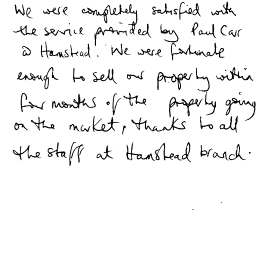 We were completely satisfied with
the service provided by Paul Carr
@ Hamstead. We were fortunate
enough to sell our property within
four months of the property going
on the market, thanks to all
the staff at Hamstead branch.